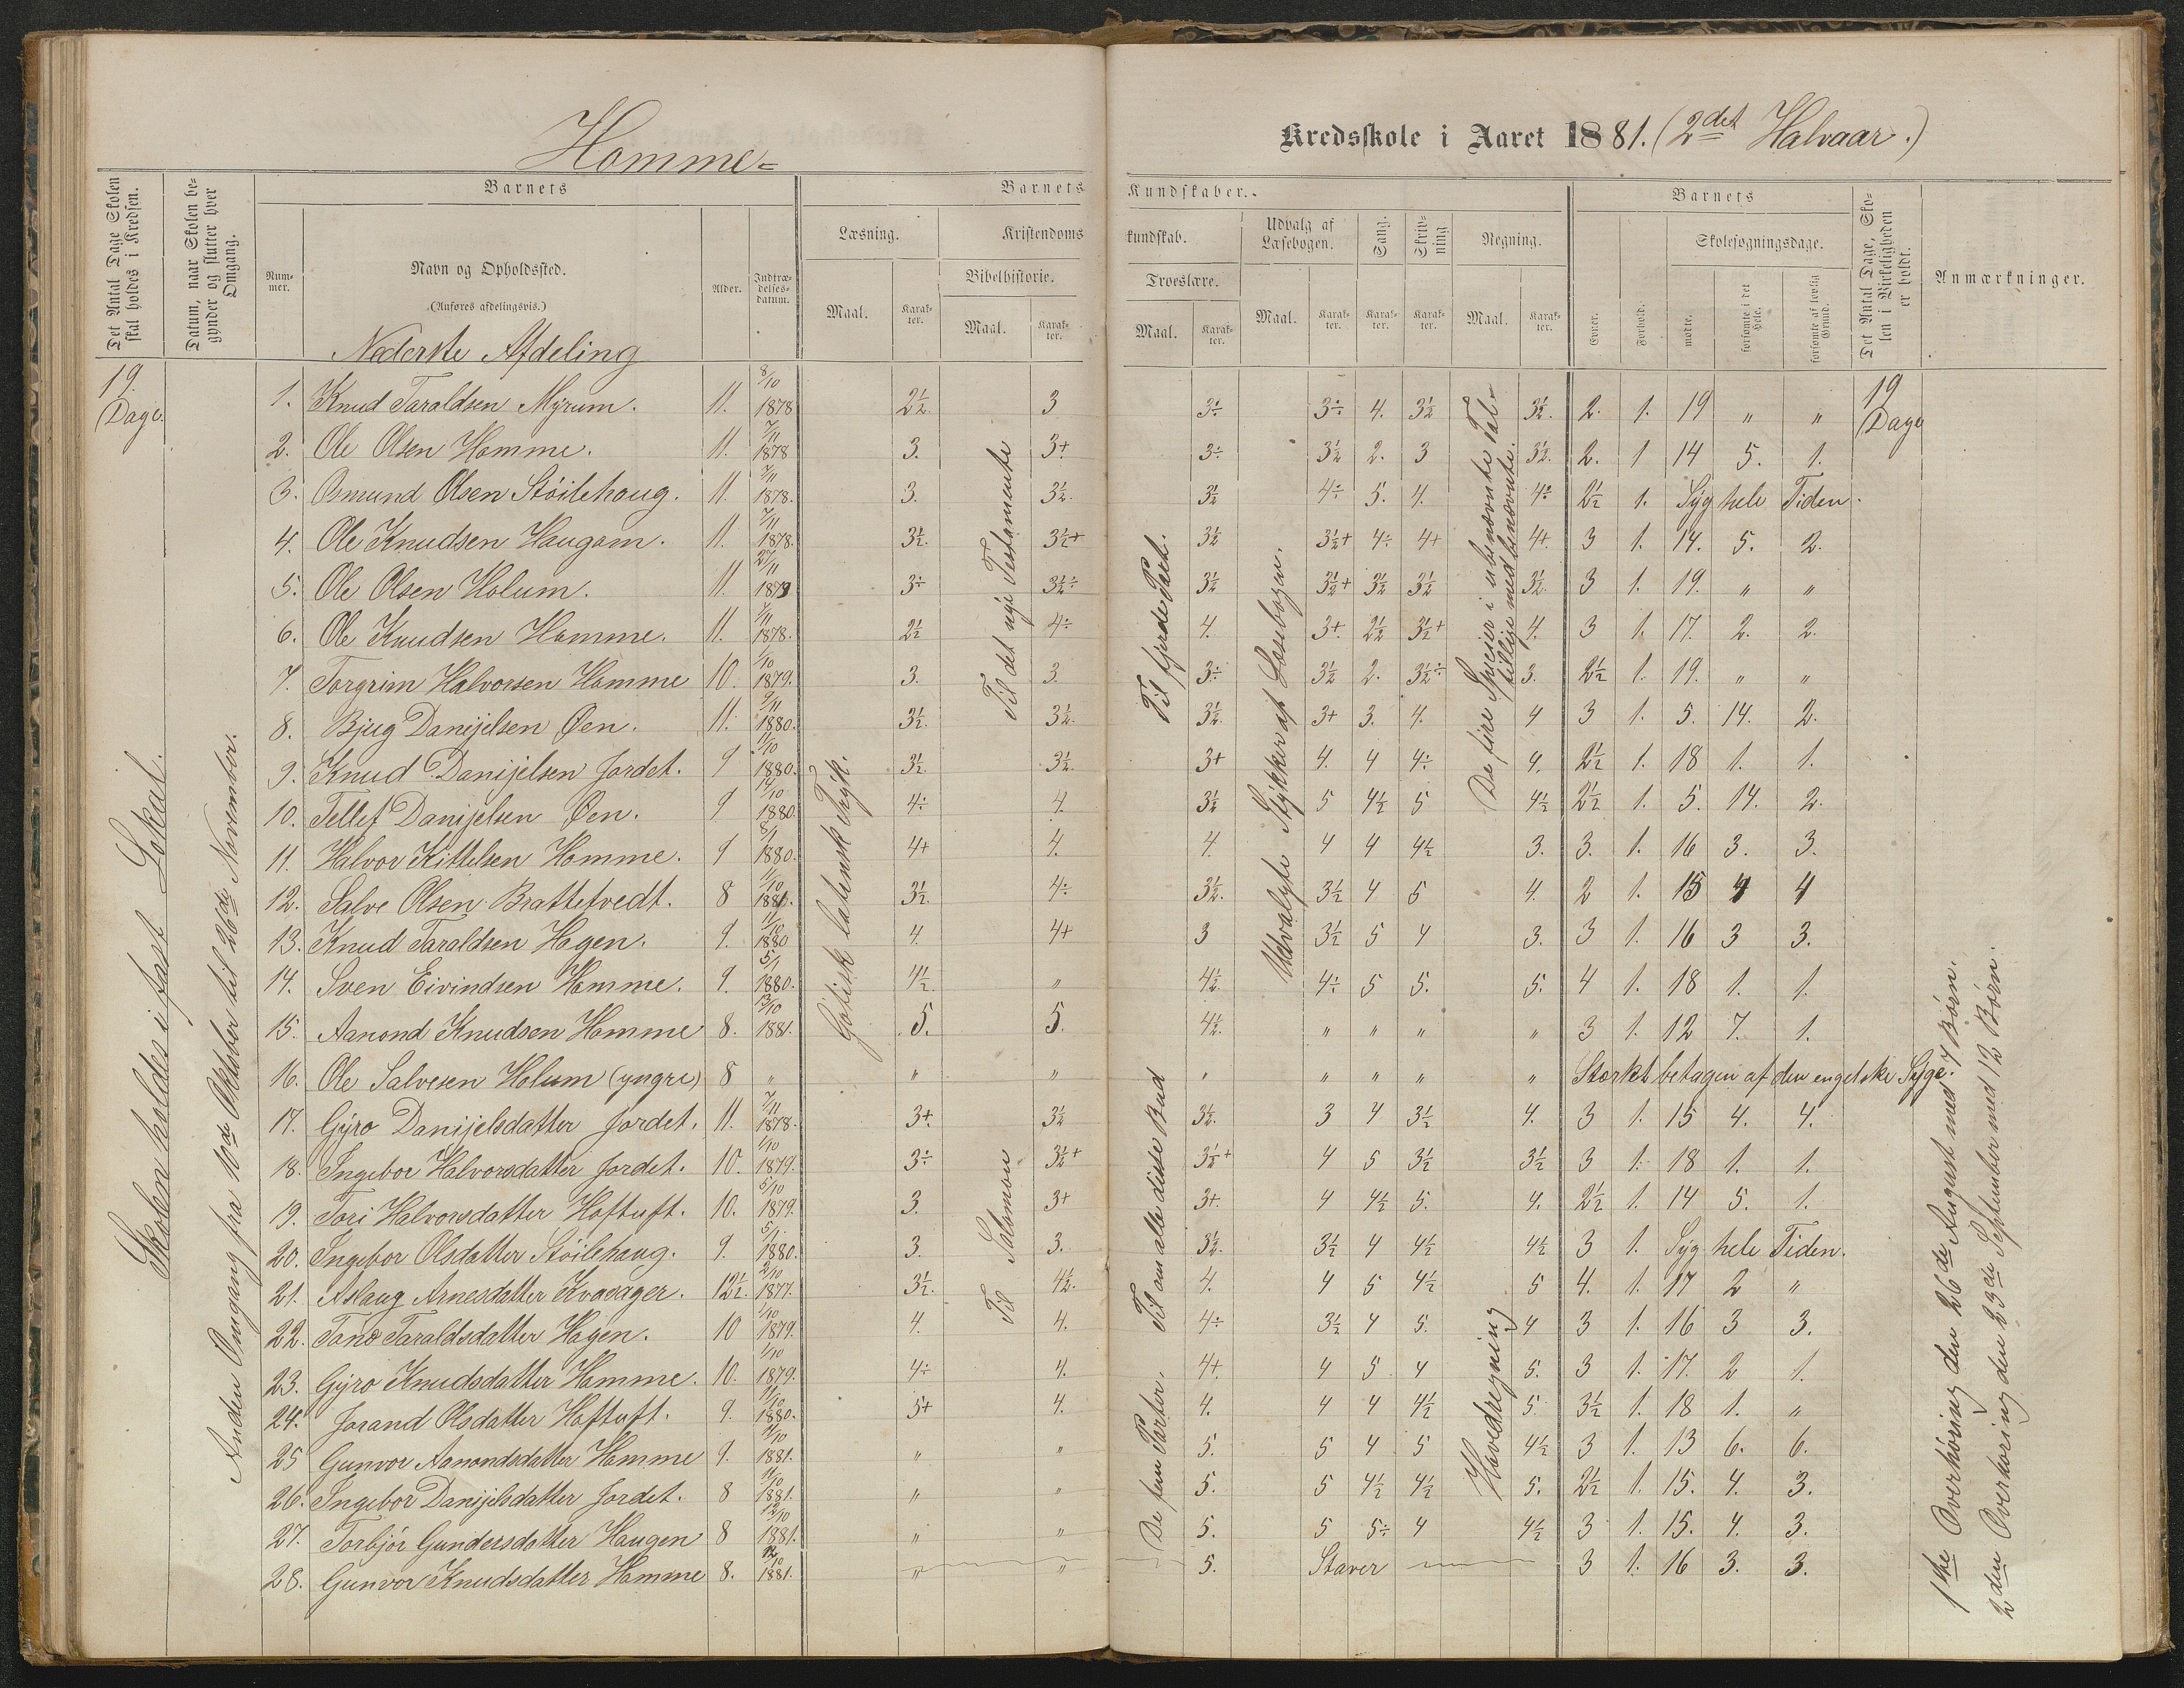 Homme-
Kredsskole i Aaret 1881. (2det Halvaar.)
Det Antal Dage Skolen skal holdes i Kredsen.
Datum, naar Skolen begynder og slutter hver Omgang.
Barnets
Nummer.
Navn og Opholdssted.
(Anføres afdelingsvis.)
Alder.
Indtrædelsesdatum.
Barnets Kundskaber.
Læsning.
Maal.
Karakter.
Kristendomskundskab.
Bibelhistorie.
Maal.
Karakter.
Troeslære.
Maal.
Karakter.
Udvalg af Læsebogen.
Maal.
Karakter.
Sang.
Karakter.
Skrivning
Karakter.
Regning.
Maal.
Karakter.
Barnets
Evner.
Forhold.
Skolesøgningsdage.
mødte.
forsømte i det Hele.
forsømte af lovlig Grund.
Det Antal Dage, Skolen i Virkeligheden er holdt.
Anmærkninger.
Nederste Afdeling
19. Dage.
19 Dage
Skolen holdes i fast Lokal.
Anden Omgang fra 10de Oktober til 26de November.
Gotisk latinsk Tryk.
Til det nye Testamente
Til Salomon
Til fjerde Part.
De fem Parter. Til an alle disse Bud
Udvalgte Stykker af Læsebogen.
De fire Specier i ubenævnte Tal
tillige med benævnte.
Hovedregning
1ste Overhøring den 26de August med 7 Børn.
2den Overhøring den 23de September med 12 Børn.
1. Knud Taraldsen Myrum. 11. 8/10 1878 2½. 3 3÷ 3÷ 4. 3½ 3½. 2. 1. 19 " "
2. Ole Olsen Homme. 11. 7/11 1878 3. 3+ 3÷ 3½ 2. 3 3½. 2. 1 14 5. 1.
3. Osmund Olsen Støilehaug. 11. 7/11 1878. 3. 3½. 3½ 4÷ 5. 4. 4÷ 2½ 1. Syg hele Tiden.
4. Ole Knudsen Haugom. 11. 7/11 1878. 3½. 3½+ 3½ 3½+ 4÷ 4+ 4+. 3 1. 14. 5. 2.
5. Ole Olsen Holum. 11. 27/11 1879 3÷ 3½÷ 3½ 3½+ 3½ 3½ 3½. 3 1. 19. " "
6. Ole Knudsen Homme. 11. 7/11 1878. 2½ 4÷ 4. 3+. 2½ 3½+ 4. 3 1. 17. 2. 2.
7. Torgrim Halvorsen Homme 10. 1/10 1879. 3. 3. 3÷ 3½ 2. 3½÷ 3. 2½ 1. 19. " "
8. Bjug Danijelsen Øen. 11. 9/11 1880. 3½. 3½. 3½. 3+ 3. 4. 4 3 1. 5. 14. 2.
9. Knud Danijelsen Jordet. 9 11/10 1880. 3½. 3½. 3+ 4. 4 4÷ 4. 2½ 1. 18 1. 1.
10. Tellef Danijelsen Øen. 9 14/10 1880. 4÷ 4. 3½ 5 4½ 5 4½ 2½ 1. 5. 14. 2.
11. Halvor Kittelsen Homme. 9 8/1 1880. 4+ 4. 4. 4 4 4½ 3. 3. 1. 16 3. 3.
12. Salve Olsen Brattetvedt. 8 11/10 1881. 3½. 4÷ 3½. 3½ 4 5 4. 2 1. 15 4 4
13. Knud Taraldsen Hagen. 9. 11/10 1880 4. 4+ 3 3½ 5 4 3. 3 1. 16 3 3.
14. Sven Eivindsen Homme. 9. 5/1 1880. 4½ " 4½. 4÷ 5 5. 5. 4 1. 18 1. 1.
15. Aanond Knudsen Homme 8. 13/10 1881. 5. 5. 4½. " " " " 3 1. 12 7. 1.
16. Ole Salvesen Holum (yngre) 8 " " " " " " " " Stærkt betagen af den engelske Syge.
17. Gyro Danijelsdatter Jordet. 11. 7/11 1878. 3+. 3½ 3½. 3 4 3½ 4. 3 1. 15 4. 4.
18. Ingebor Halvorsdatter Jordet. 10. 1/10 1879. 3÷ 3½+ 3½+ 4 5 3½ 3½ 3 1. 18 1. 1.
19. Tori Halvorsdatter Hoftuft. 10. 5/10 1879. 3. 3+ 3+. 4 4½ 5. 4. 2½ 1. 14 5. 1.
20. Ingebor Olsdatter Støilehaug. 9. 5/1 1880. 3. 3. 3½. 3½ 4 4½ 4½ 3 1. Syg hele Tiden.
21. Aslaug Arnesdatter Kvaasager. 12½. 2/10 1877. 3½. 4½. 4. 4 5 4½ 5 4. 1. 17 2 "
22. Tone Taraldsdatter Hagen. 10 1/10 1879. 4. 4. 4÷ 3½ 4 5. 4 3 1. 16 3 3.
23. Gyro Knudsdatter Homme. 10. 1/10 1879. 4÷ 4. 4+. 4 5 4 5. 3 1. 17. 2 1.
24. Jorand Olsdatter Hoftuft. 9. 11/10 1880. 5+ 4. 4. 4 4 4½ 5. 3½ 1. 18 1. "
25 Gunvor Aanondsdatter Homme 9. 11/10 1881. " " 5. 5 4 5 4½ 3 1. 13 6. 6.
26. Ingebor Danijelsdatter Jordet. 8 11/10 1881. " " 5. 5 4½ 4½ 5. 2½ 1. 15. 4. 3.
27. Torbjør Gundersdatter Haugen 8 12/10 1881. " " 5. 5 5÷ 4 4½ 3 1. 15. 4. 3.
28. Gunvor Knudsdatter Homme 8. 12/10 1881. " " 5. Staver 3 1. 16 3. 3.